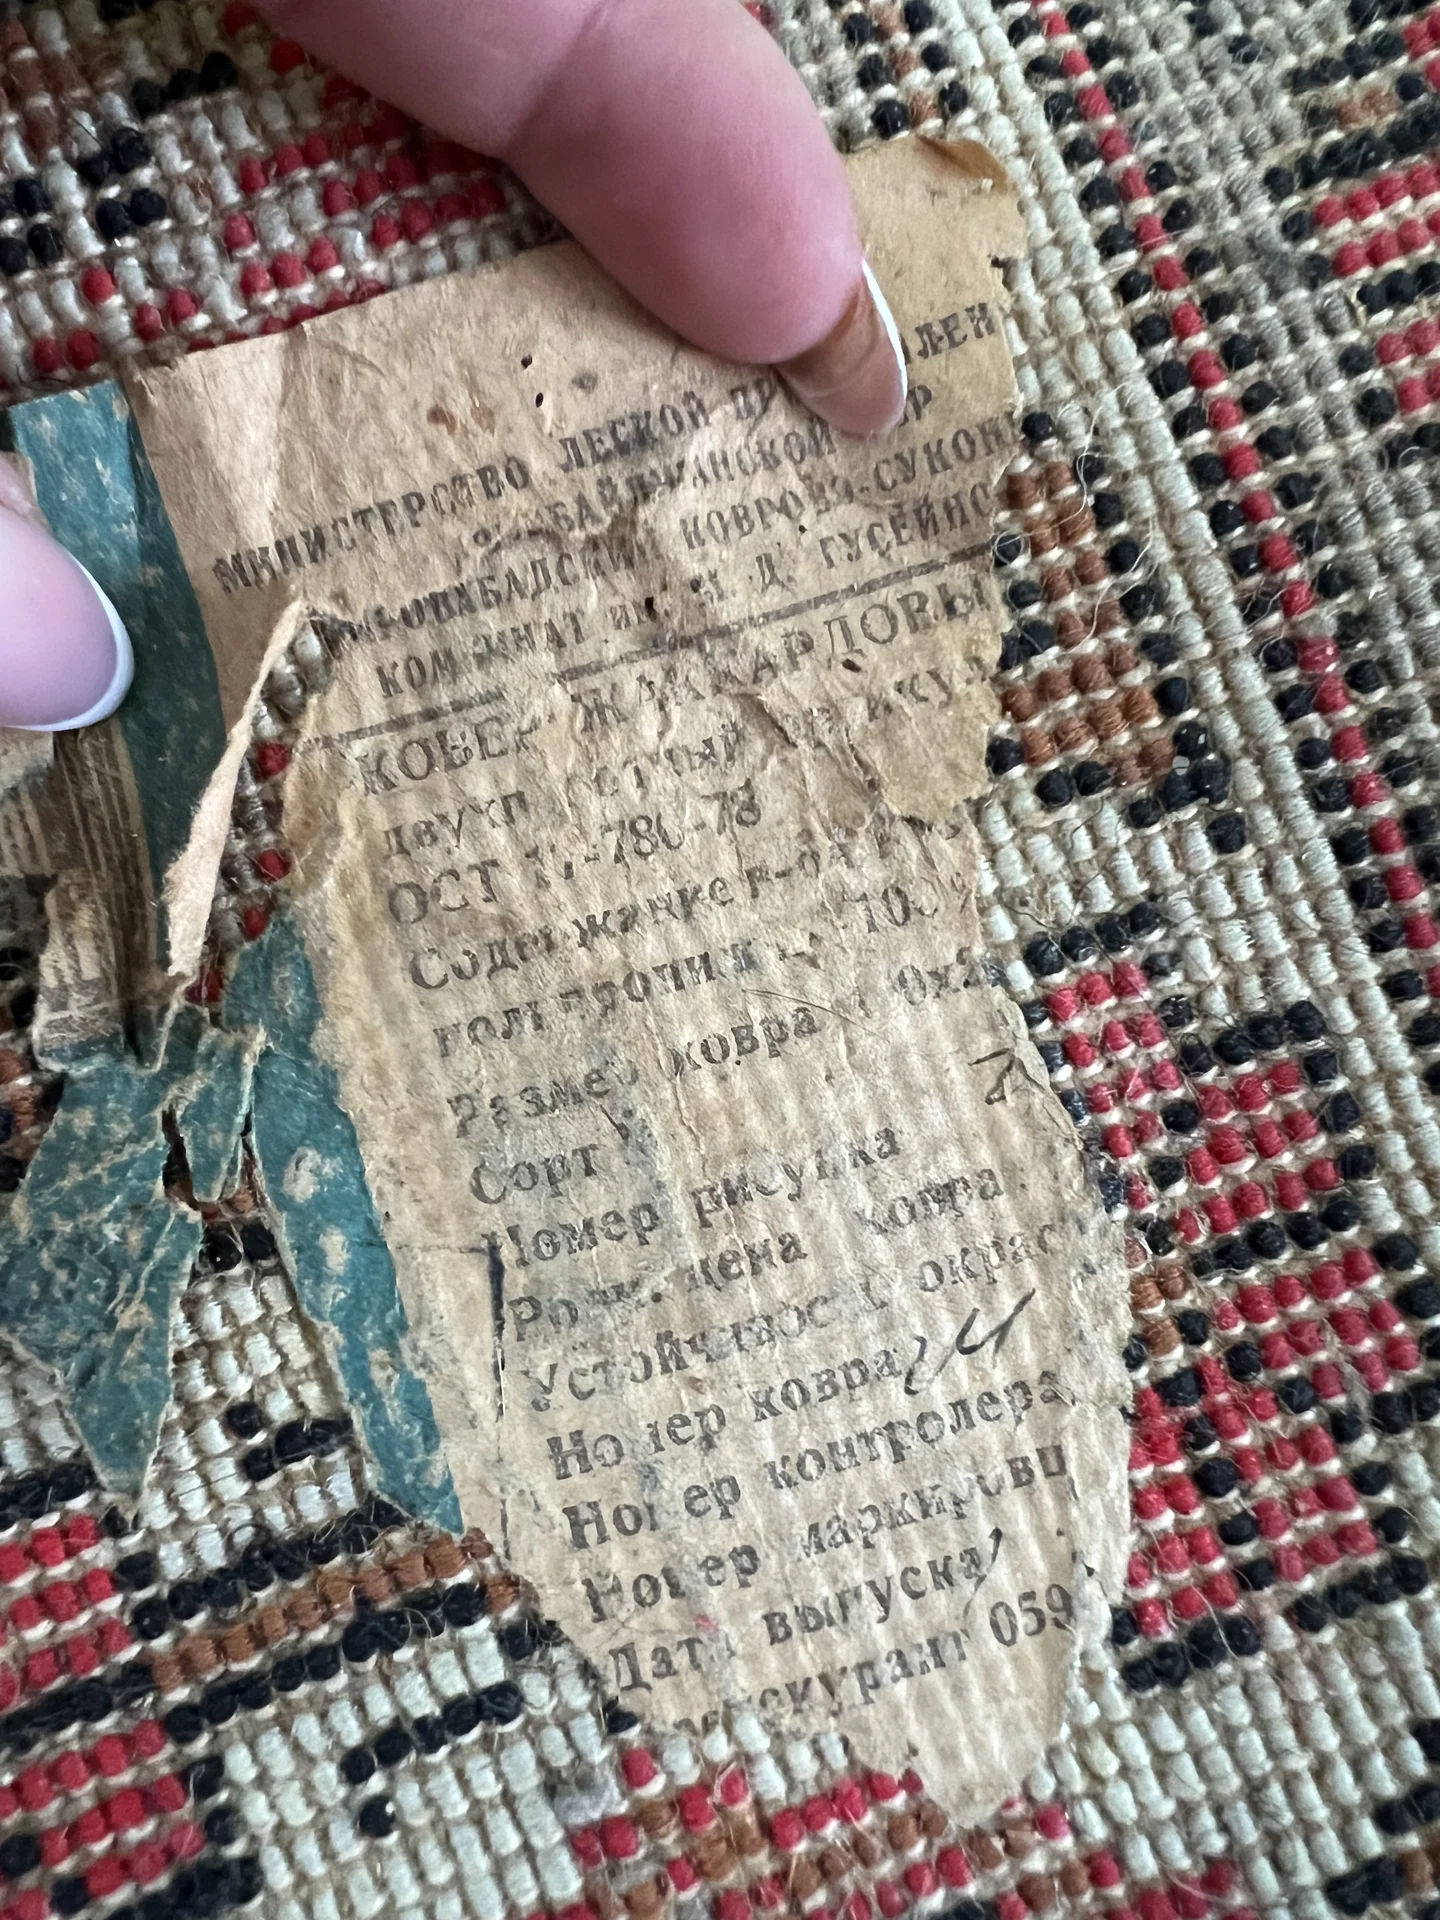 МИНИСТЕРСТВО ЛЕГКОЙ ПР ЛЕН
БАЙДЖАНСКОЙ Р
КИРОВАБАДСКИЙ КОВРОВО-СУКОН
КОМБИНАТ им. Н. Д. ГУСЕЙНО
КОВЕР ЖАККАРДОВЫ
двухп
ОСТ 17-780-78
Содержание
100%
Размер ковра 0х2
Сорт
Номер рисунка
Розн. цена ковра
Устойчивость окрас
Номер ковра 24
Номер контролера
Номер маркировщ
Дата выпуска
рейскурант 059